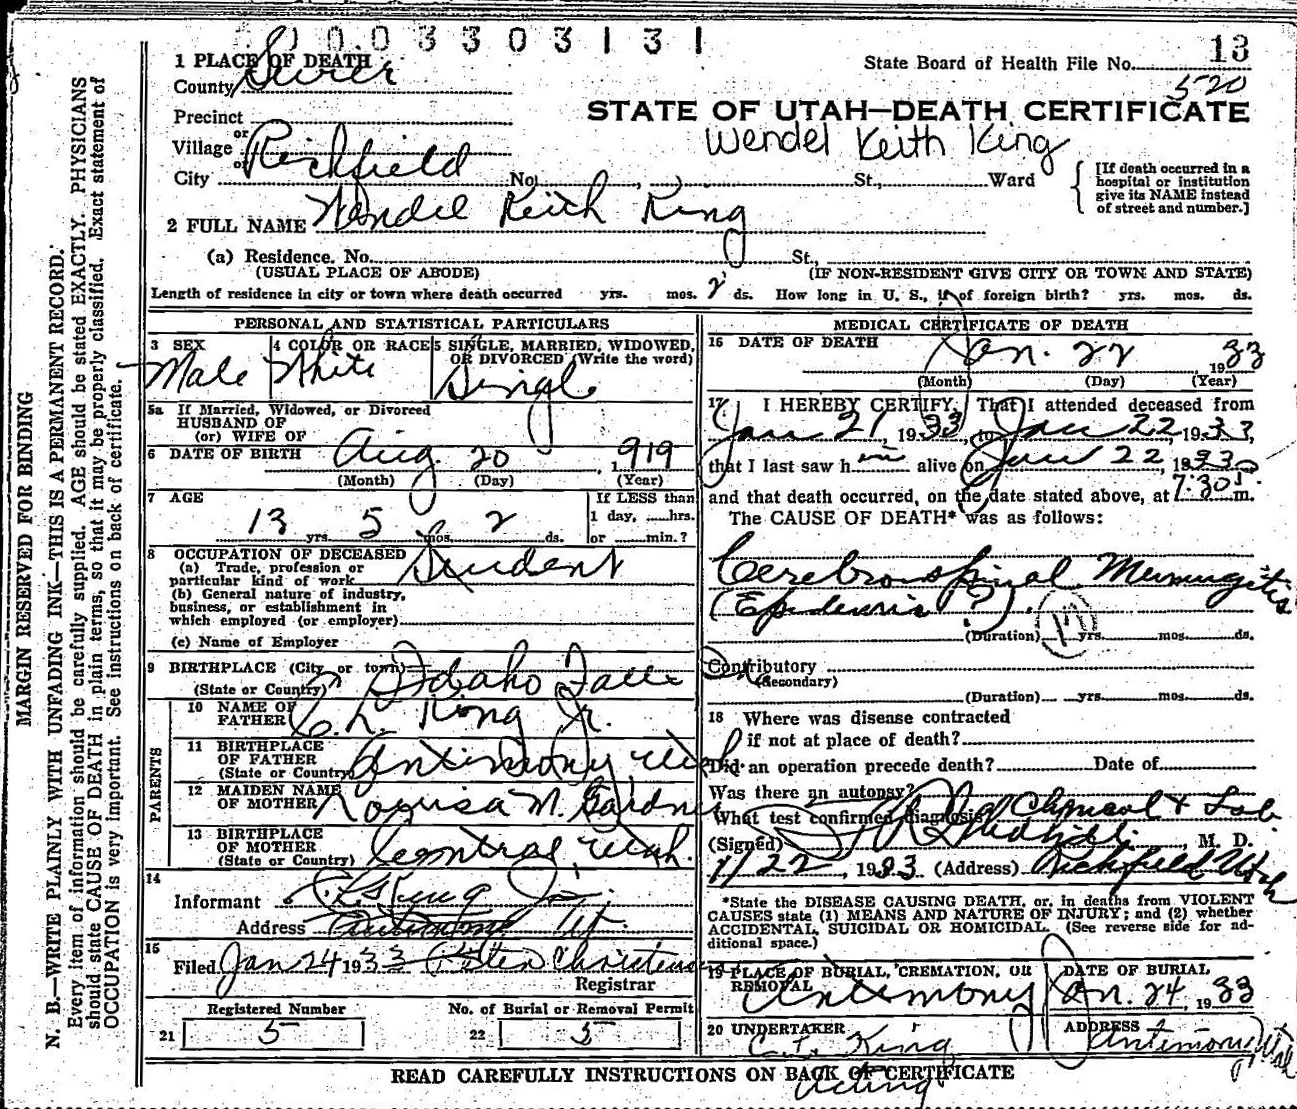 0003303131
13
State Board of Health File No.
520
STATE OF UTAH—DEATH CERTIFICATE
Wendel Keith King
1 PLACE OF DEATH
County Sevier
Precinct
or
Village
or
City Richfield No. , St., Ward
[If death occurred in a
hospital or institution
give its NAME instead
of street and number.]
2 FULL NAME Wendel Keith King
(a) Residence. No. St.,
(USUAL PLACE OF ABODE) (IF NON-RESIDENT GIVE CITY OR TOWN AND STATE)
Length of residence in city or town where death occurred yrs. mos. 2 ds. How long in U. S., if of foreign birth? yrs. mos. ds.
PERSONAL AND STATISTICAL PARTICULARS
3 SEX Male
4 COLOR OR RACE White
5 SINGLE, MARRIED, WIDOWED,
OR DIVORCED (Write the word)
Single
5a If Married, Widowed, or Divorced
HUSBAND OF
(or) WIFE OF
6 DATE OF BIRTH Aug. 20, 1919
(Month) (Day) (Year)
7 AGE
13 yrs. 5 mos. 2 ds.
If LESS than
1 day, hrs.
or min.?
8 OCCUPATION OF DECEASED
(a) Trade, profession or
particular kind of work Student
(b) General nature of industry,
business, or establishment in
which employed (or employer)
(c) Name of Employer
9 BIRTHPLACE (City or town)
(State or Country) Idaho Falls
PARENTS
10 NAME OF
FATHER C. L. King Jr.
11 BIRTHPLACE
OF FATHER
(State or Country) Antimony, Utah
12 MAIDEN NAME
OF MOTHER Louisa M. Gardner
13 BIRTHPLACE
OF MOTHER
(State or Country) Central, Utah.
14
Informant C. L. King Jr.
Address Antimony Ut.
15
Filed Jan 24 1933 Christensen
Registrar
Registered Number No. of Burial or Removal Permit
21 5 22 5
MEDICAL CERTIFICATE OF DEATH
16 DATE OF DEATH
Jan. 22 1933
(Month) (Day) (Year)
17 I HEREBY CERTIFY, That I attended deceased from
Jan 21, 1933, to Jan 22, 1933,
that I last saw him alive on Jan 22, 1933
and that death occurred, on the date stated above, at 7:30 m.
The CAUSE OF DEATH* was as follows:
Cerebrospinal Meningitis
(Epidemic ?).
(Duration) yrs. mos. ds.
Contributory
(Secondary)
(Duration) yrs. mos. ds.
18 Where was disease contracted
if not at place of death?
Did an operation precede death? Date of
Was there an autopsy?
What test confirmed diagnosis? Clinical & Lab.
(Signed) , M. D.
1/22, 1933 (Address) Richfield Utah
*State the DISEASE CAUSING DEATH, or, in deaths from VIOLENT
CAUSES state (1) MEANS AND NATURE OF INJURY; and (2) whether
ACCIDENTAL, SUICIDAL OR HOMICIDAL. (See reverse side for ad-
ditional space.)
19 PLACE OF BURIAL, CREMATION, OR
REMOVAL
Antimony
DATE OF BURIAL
Jan. 24, 1933
20 UNDERTAKER
C. L. King
Acting
ADDRESS
Antimony, Utah
READ CAREFULLY INSTRUCTIONS ON BACK OF CERTIFICATE
MARGIN RESERVED FOR BINDING
N. B.—WRITE PLAINLY WITH UNFADING INK—THIS IS A PERMANENT RECORD.
Every item of information should be carefully supplied. AGE should be stated EXACTLY. PHYSICIANS
should state CAUSE OF DEATH in plain terms, so that it may be properly classified. Exact statement of
OCCUPATION is very important. See instructions on back of certificate.